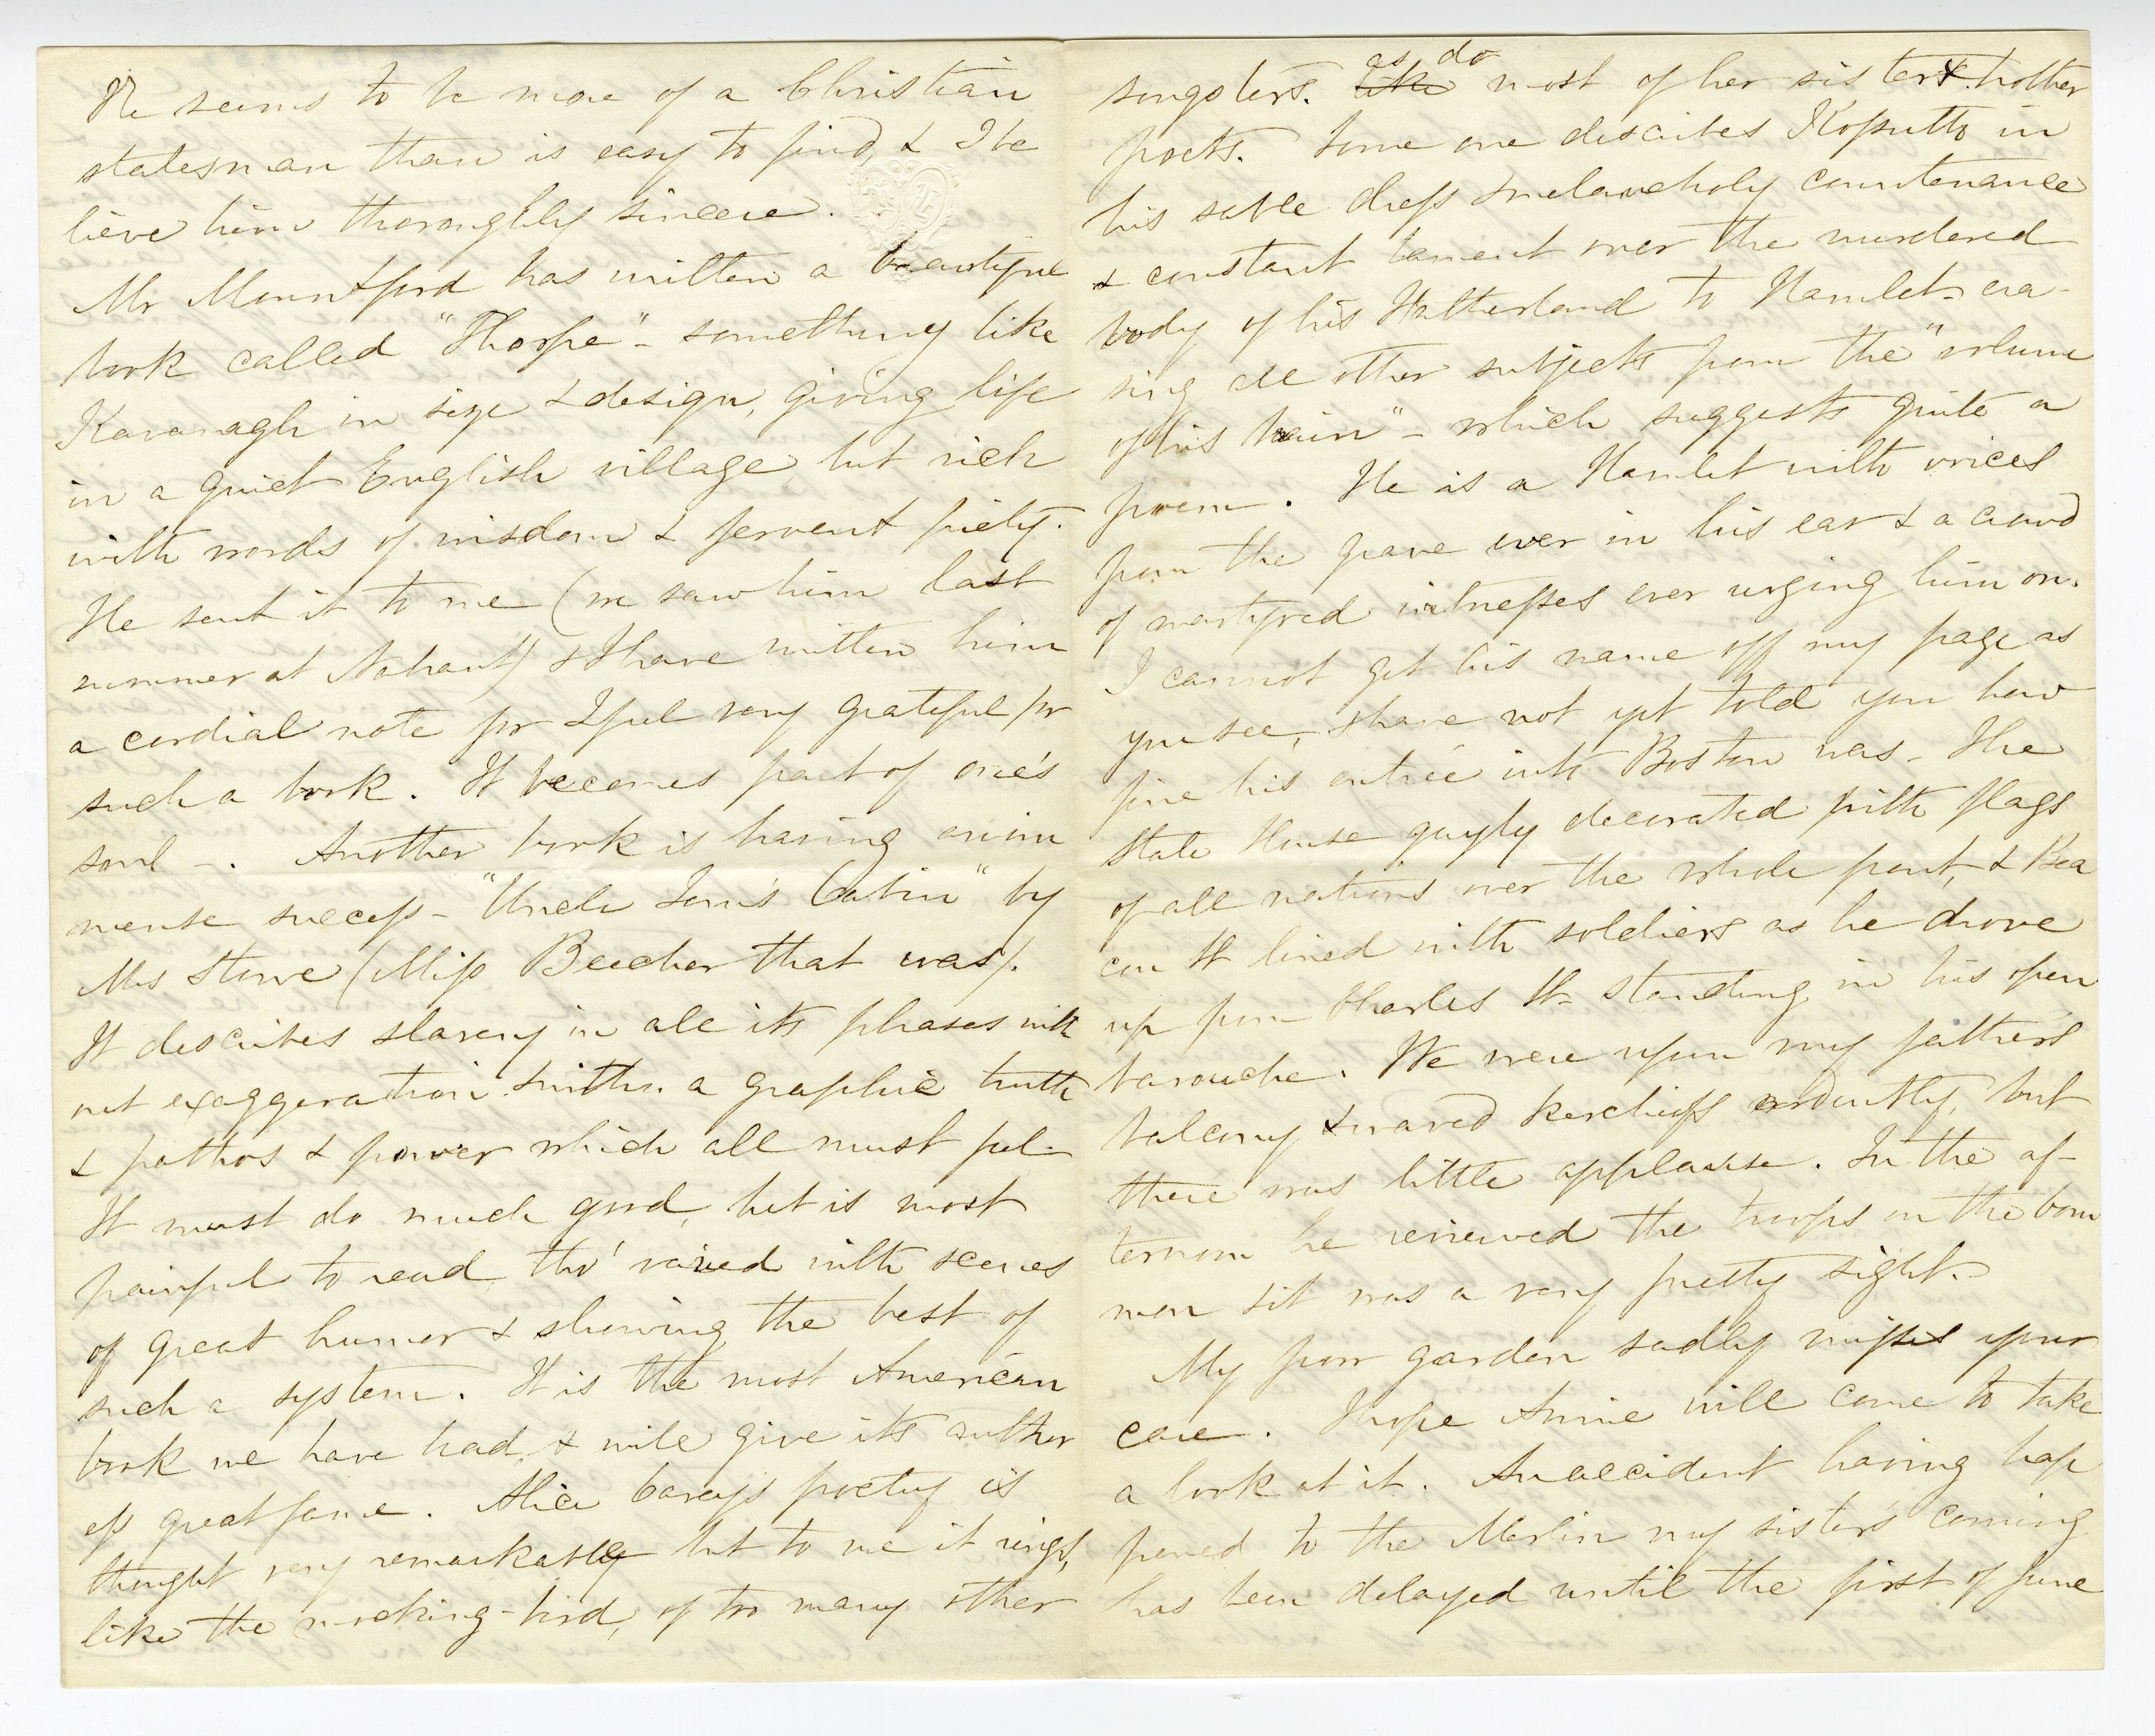 He seems to be more of a Christian
statesman than is easy to find, & I be
lieve him thoroughly sincere.
Mr Mountford has written a beautiful
book called "Thorpe" - something like
Kavanagh in size & design, giving life
in a quiet English village, but rich
with words of wisdom & fervent piety.
He sent it to me (we saw him last
summer at Nahant) & I have written him
a cordial note for I feel very grateful for
such a book. It becomes part of one's
soul -. Another book is having an im
mense success - "Uncle Tom's Cabin" by
Mrs Stowe (Miss Beecher that was).
It describes slavery in all its phases with
out exaggeration & with a graphic truth
& pathos & power which all must feel.
It must do much good, but is most
painful to read, tho' varied with scenes
of great humor & showing the best of
such a system. It is the most American
book we have had, & will give its author
ess great fame. Alice Carey's poetry is
thought very remarkable but to me it rings,
like the mocking-bird, of too many other
songsters. like as do most of her sister & brother
poets. Some one describes Kossuth in
his sable dress & melancholy countenance
& constant lament over the murdered
body of his Fatherland to Hamlet - era-
sing all other subjects from the "volume
of his brain" - which suggests quite a
poem. He is a Hamlet with voices
from the grave ever in his ear & a crowd
of martyred witnesses ever urging him on.
I cannot get his name off my page as
you see, & have not yet told you how
fine his entrée into Boston was - The
State House gayly decorated with flags
of all nations over the whole front, & Bea
con St lined with soldiers as he drove
up from Charles St - standing in his open
barouche. We were upon my father's
balcony & waved kerchiefs ardently, but
there was little applause. In the af-
ternoon he reviewed the troops on the Com
mon & it was a very pretty sight.
My poor garden sadly misses your
care. I hope Annie will come to take
a look at it. An accident having hap
pened to the Merlin my sister's coming
has been delayed until the first of June